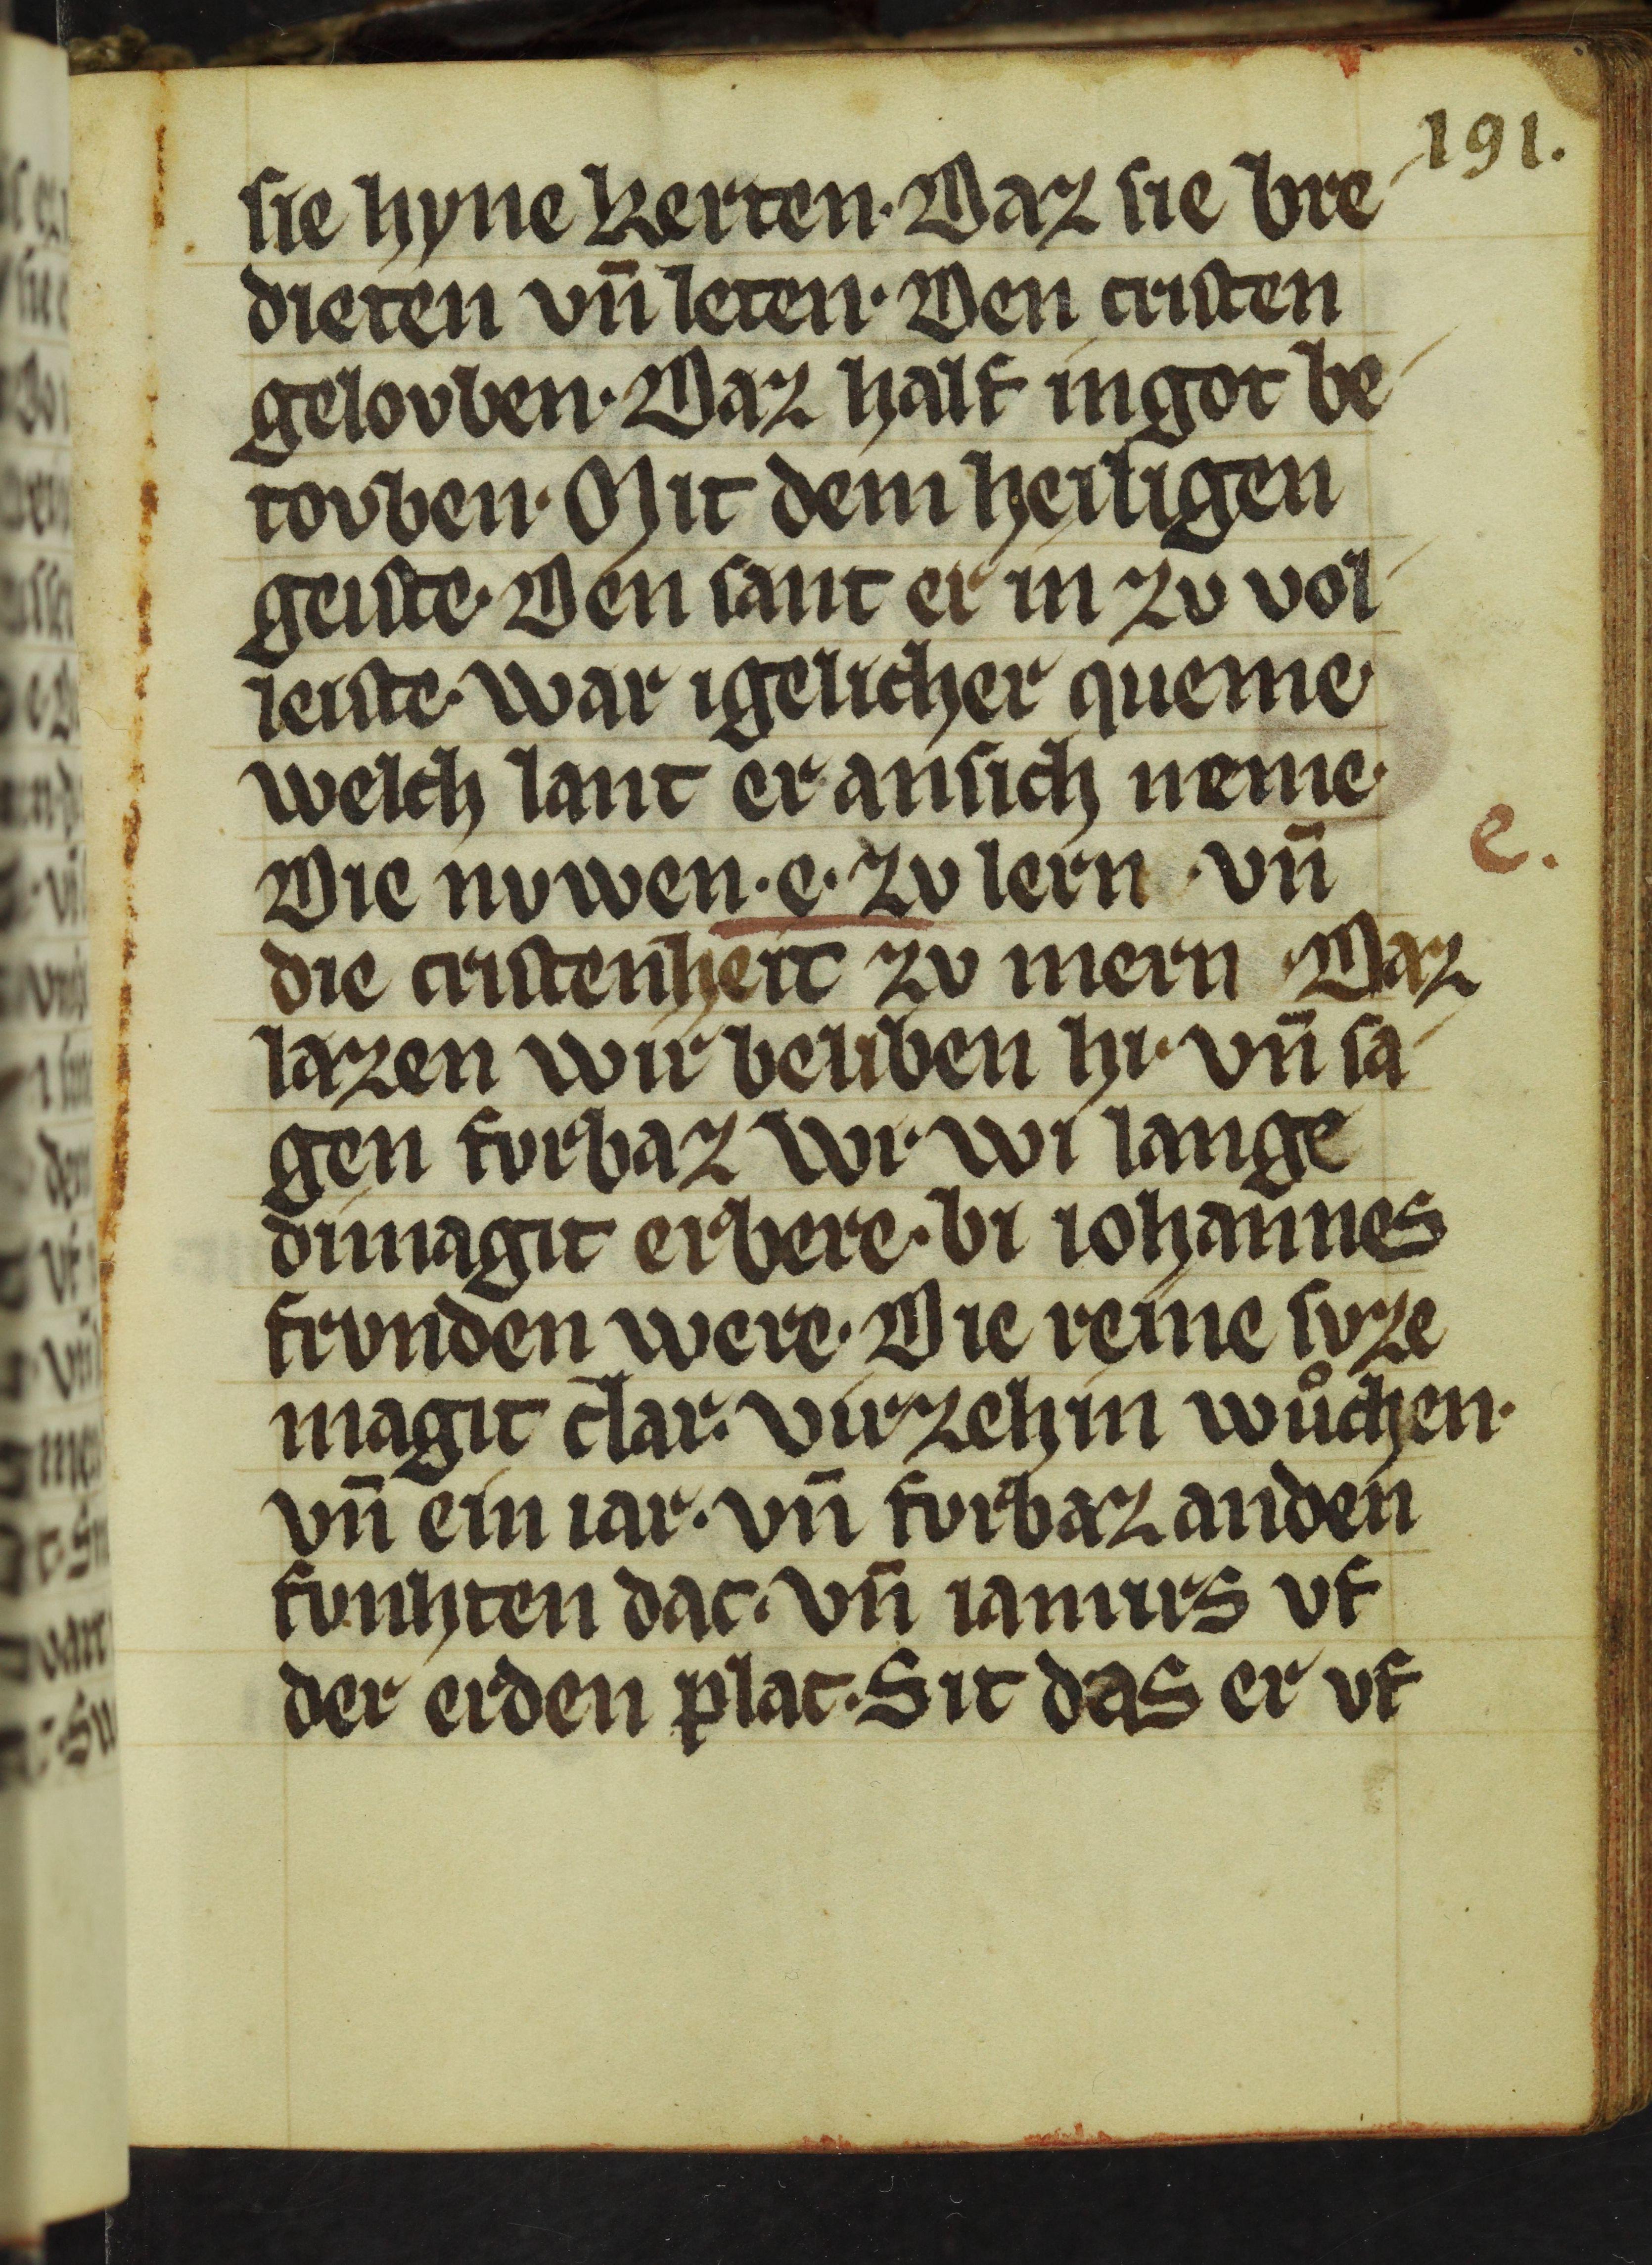 191.
sie hyne kerten· Daz sie bre
dieten vn̄ leten· Den cristen
gelovben· Daz half in got be
tovben· Mit dem heiligen
geiste· Den sant er in zv vol
leiste· war igelicher queme·
welch lant er an sich neme·
Die nvwen·e· zv lern ·vn̄
e.
die cristenheit zv mern ·Daz
lazen wir beliben hi· vn̄ sa
gen fvrbaz wi· wi lange
di magit erbere· bi iohannes
frvnden were· Die reine svze
magit clar· virzehin wůchen·
vn̄ ein iar· vn̄ fvrbaz an den
fvnhten dac· vn̄ iamirs vf
der erden plac· Sit das er vf